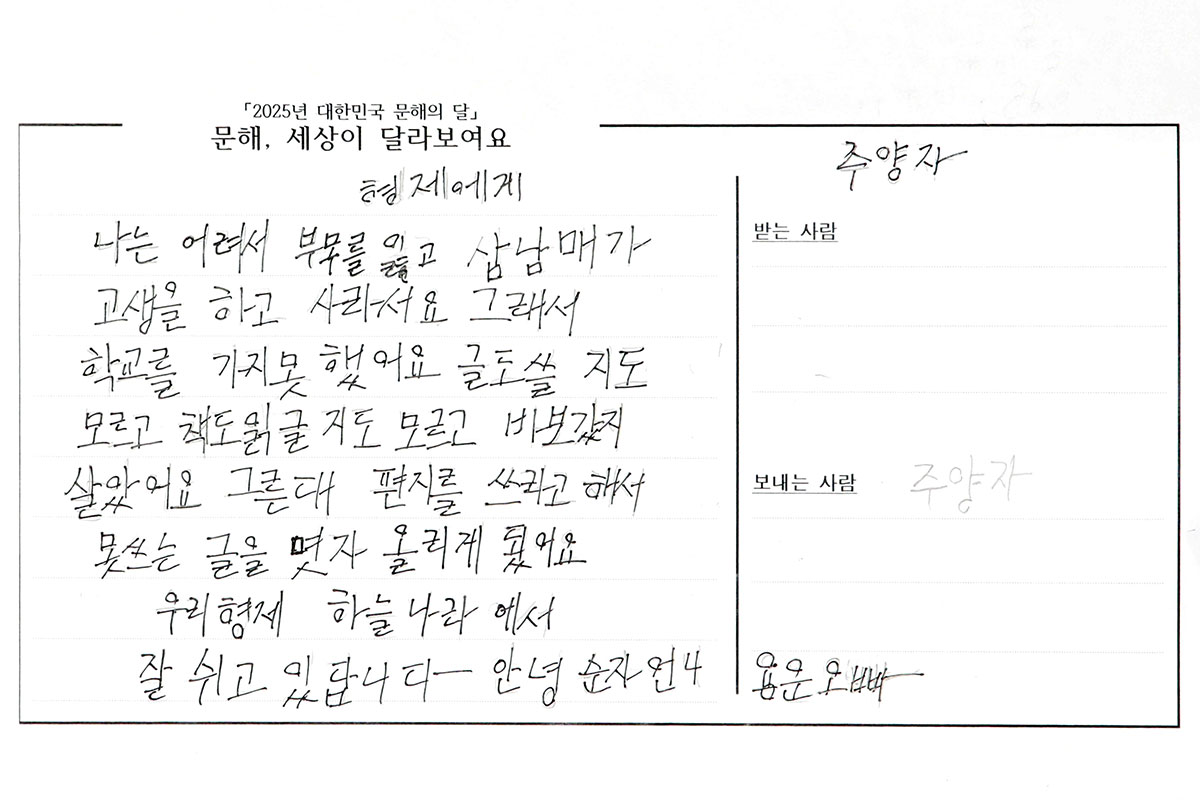 「2025년 대한민국 문해의 달」
문해, 세상이 달라보여요
형제에게
나는 어려서 부모를 잃고 삼남매가
고생을 하고 사라서요 그래서
학교를 가지못 했어요 글도쓸 지도
모르고 책도읽글 지도 모르고 바보갔치
살았어요 그른대 편지를 쓰라고 해서
못쓰는 글을 몇자 올리게 됬어요
우리형제 하늘나라 에서
잘 쉬고 있답니다 안녕 순자언니
주양자
받는 사람
보내는 사람 주양자
용운오빠